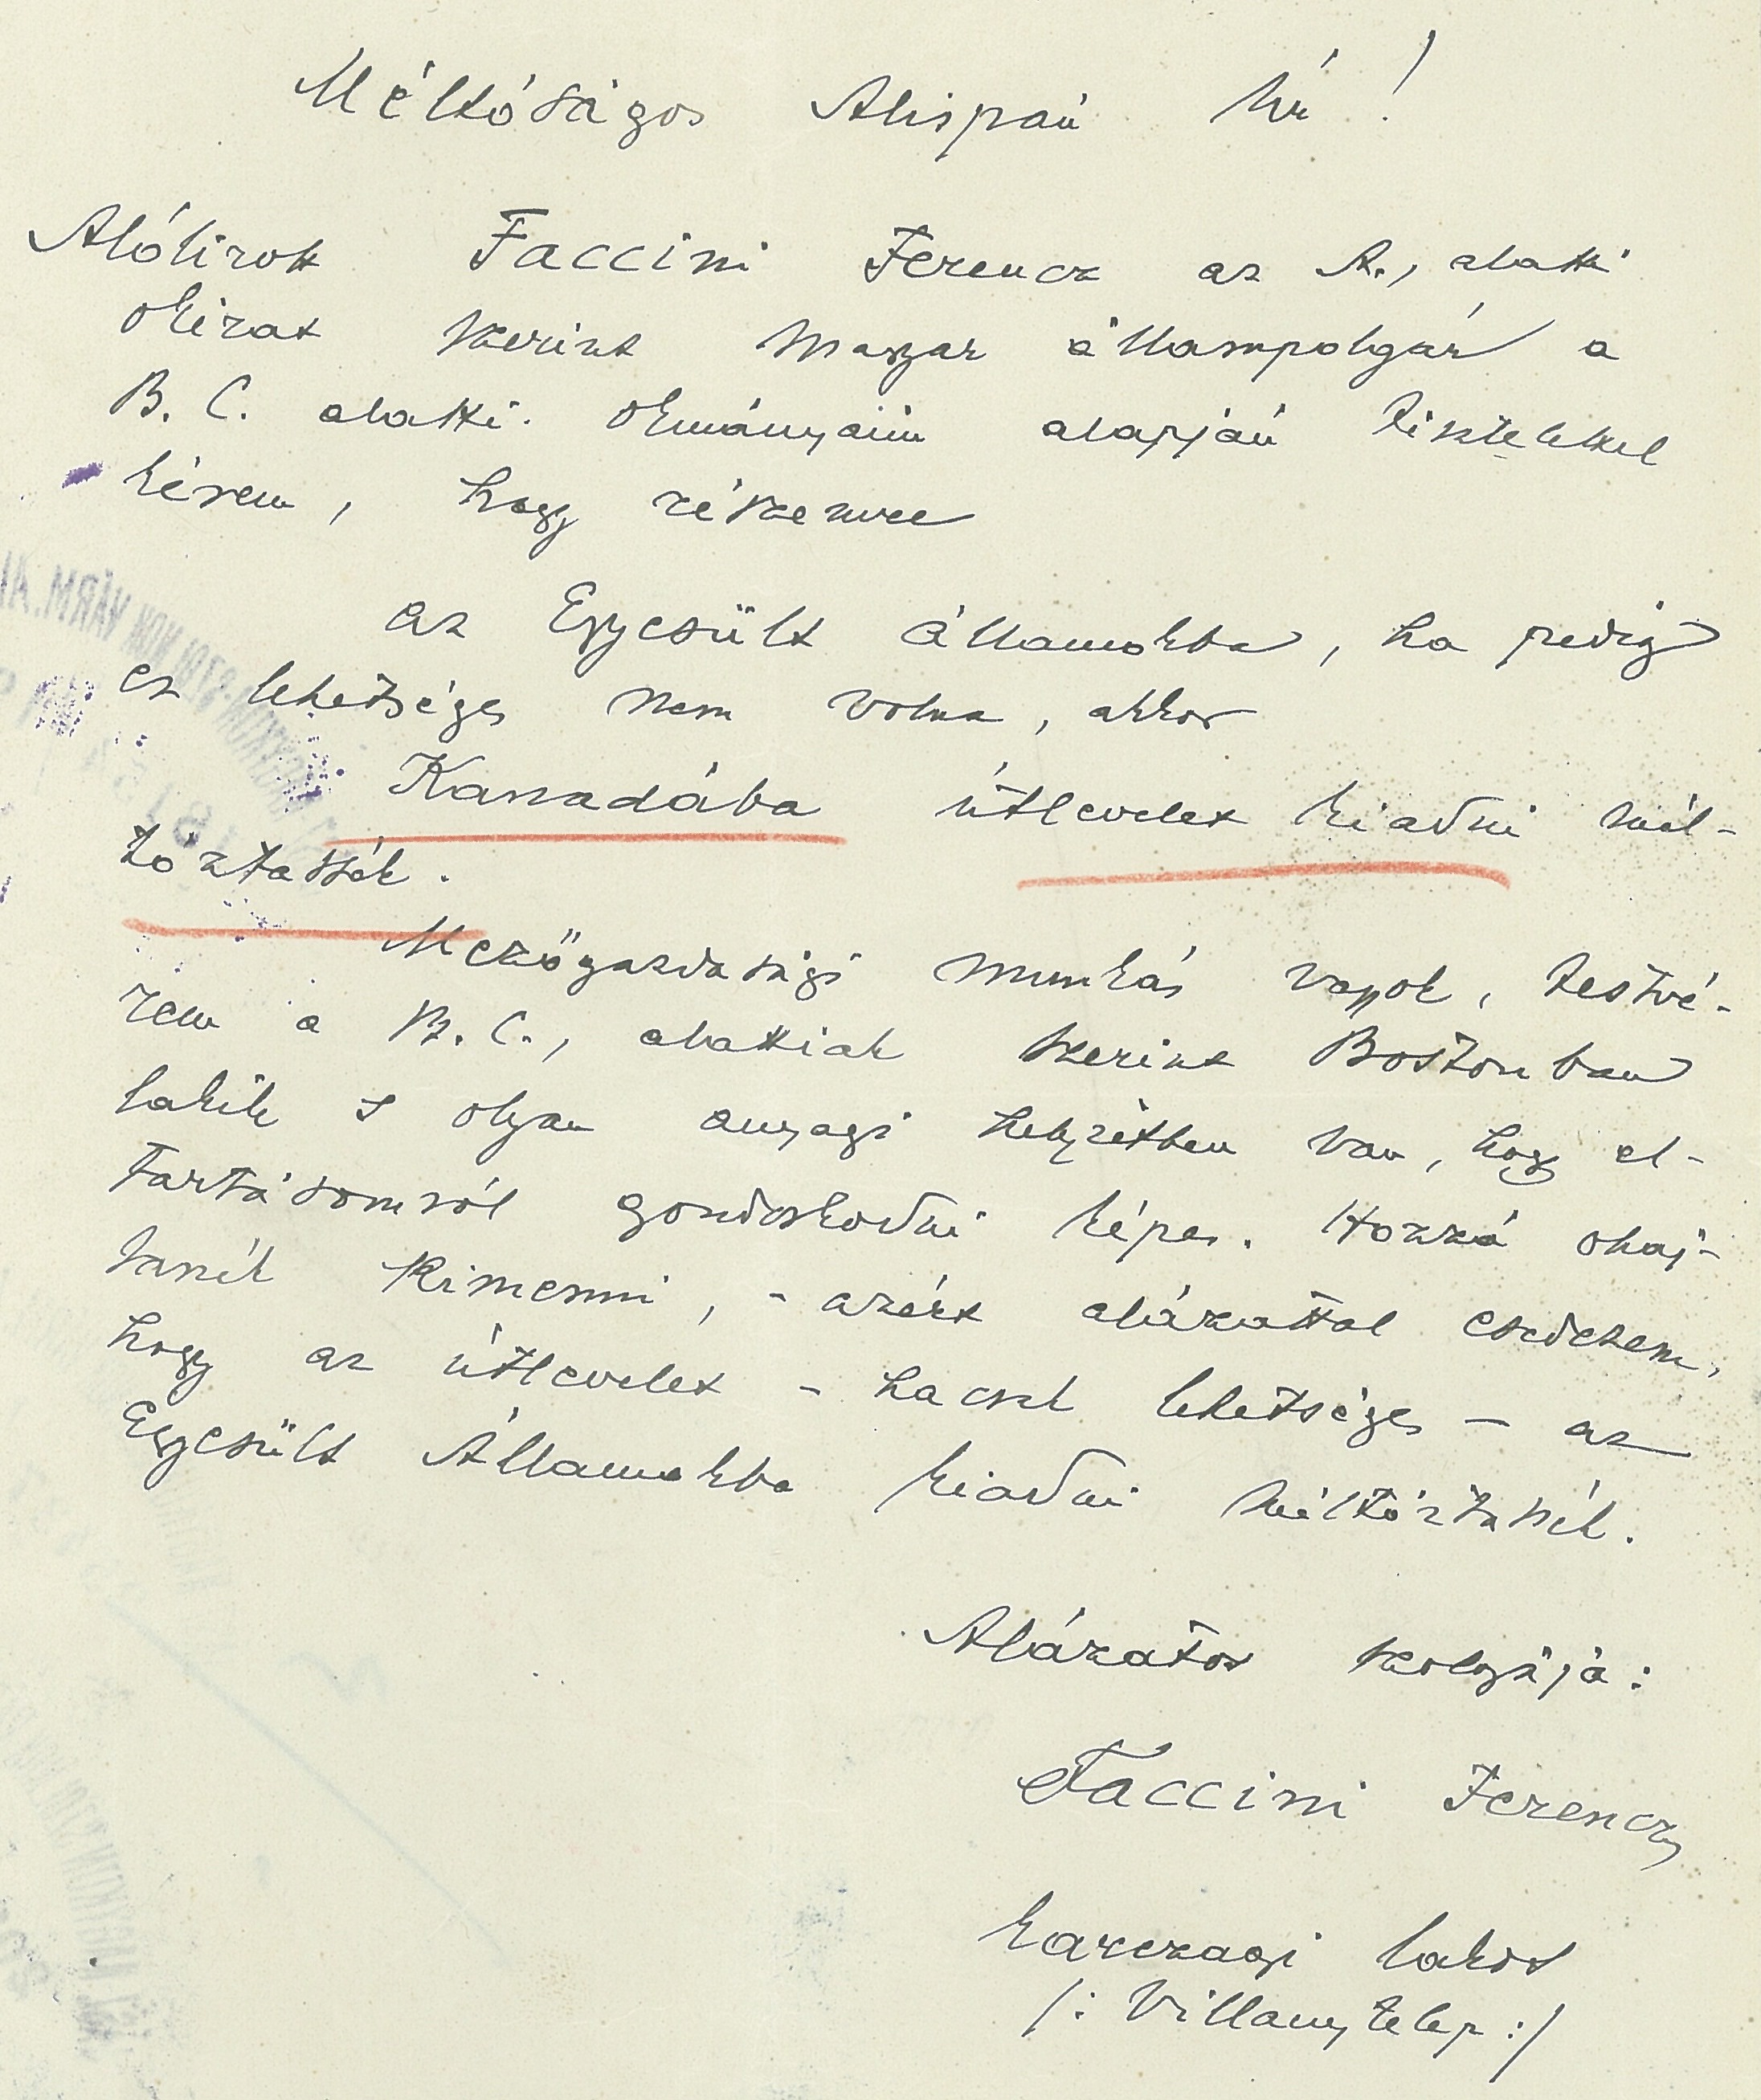 Méltóságos Alispán Úr!
Alólirott Faccini Ferencz az A., alatti
okirat szerint magyar állampolgár a
B. C. alatti okmányaim alapján tisztelettel
kérem, hogy részemre
az Egyesült államokba, ha pedig
ez lehetséges nem volna, akkor
Kanadába útlevelet kiadni mél-
tóztassék.
Mezőgazdasági munkás vagyok, testvé-
rem a B. C., alattiak szerint Bostonban
lakik s olyan anyagi helyzetben van, hogy el-
tartásomról gondoskodni képes. Hozzá ohaj-
tanék kimenni, - azért alázattal esedezem,
hogy az útlevelet - ha csak lehetséges - az
Egyesült Államokba kiadni méltóztassék.
Alázatos szolgája:
Faccini Ferencz
karczagi lakos
/: Villanytelep :/